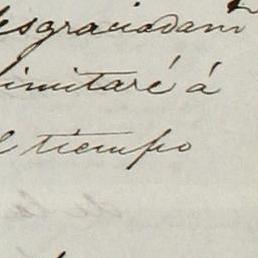 desgraciadam.te
limitaré á
el tiempo